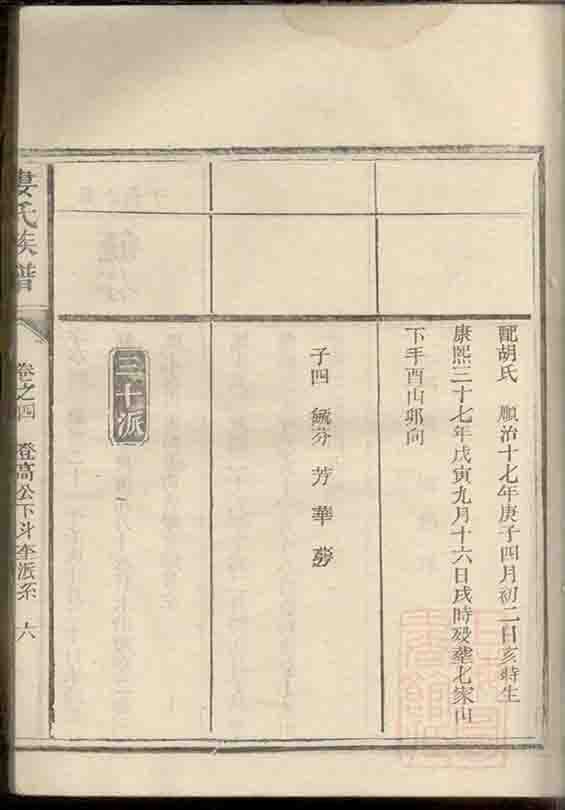 配胡氏 順治十七年庚子四月初二日亥時生
康熙三十七年戊寅九月十六日戌時歿葬七家山
下手酉山卯向
子四 毓芬 芳 華
三十派
婁氏族譜 卷之四 登高公下斗奎派系 六